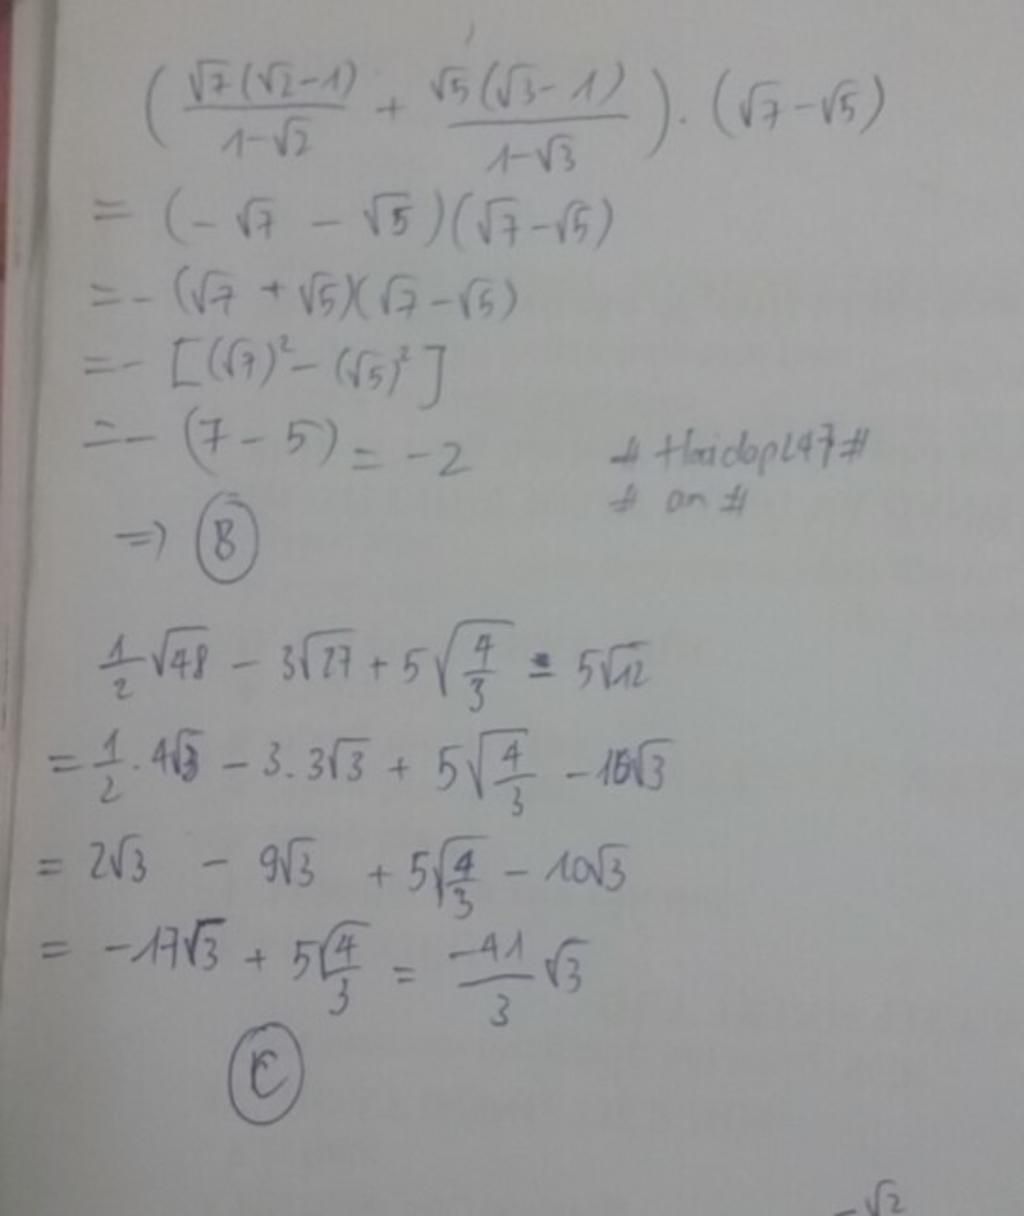 (√7(√2-1)/1-√2 + √5(√3-1)/1-√3) . (√7-√5)
= (-√7 - √5)(√7-√5)
= - (√7 + √5)(√7-√5)
= - [(√7)² - (√5)²]
= - (7 - 5) = -2
# an #
=> B
1/2 √48 - 3√27 + 5√4/3 - 5√12
= 1/2 . 4√3 - 3.3√3 + 5√4/3 - 10√3
= 2√3 - 9√3 + 5√4/3 - 10√3
= -17√3 + 5√4/3 = -41/3 √3
C
-√2